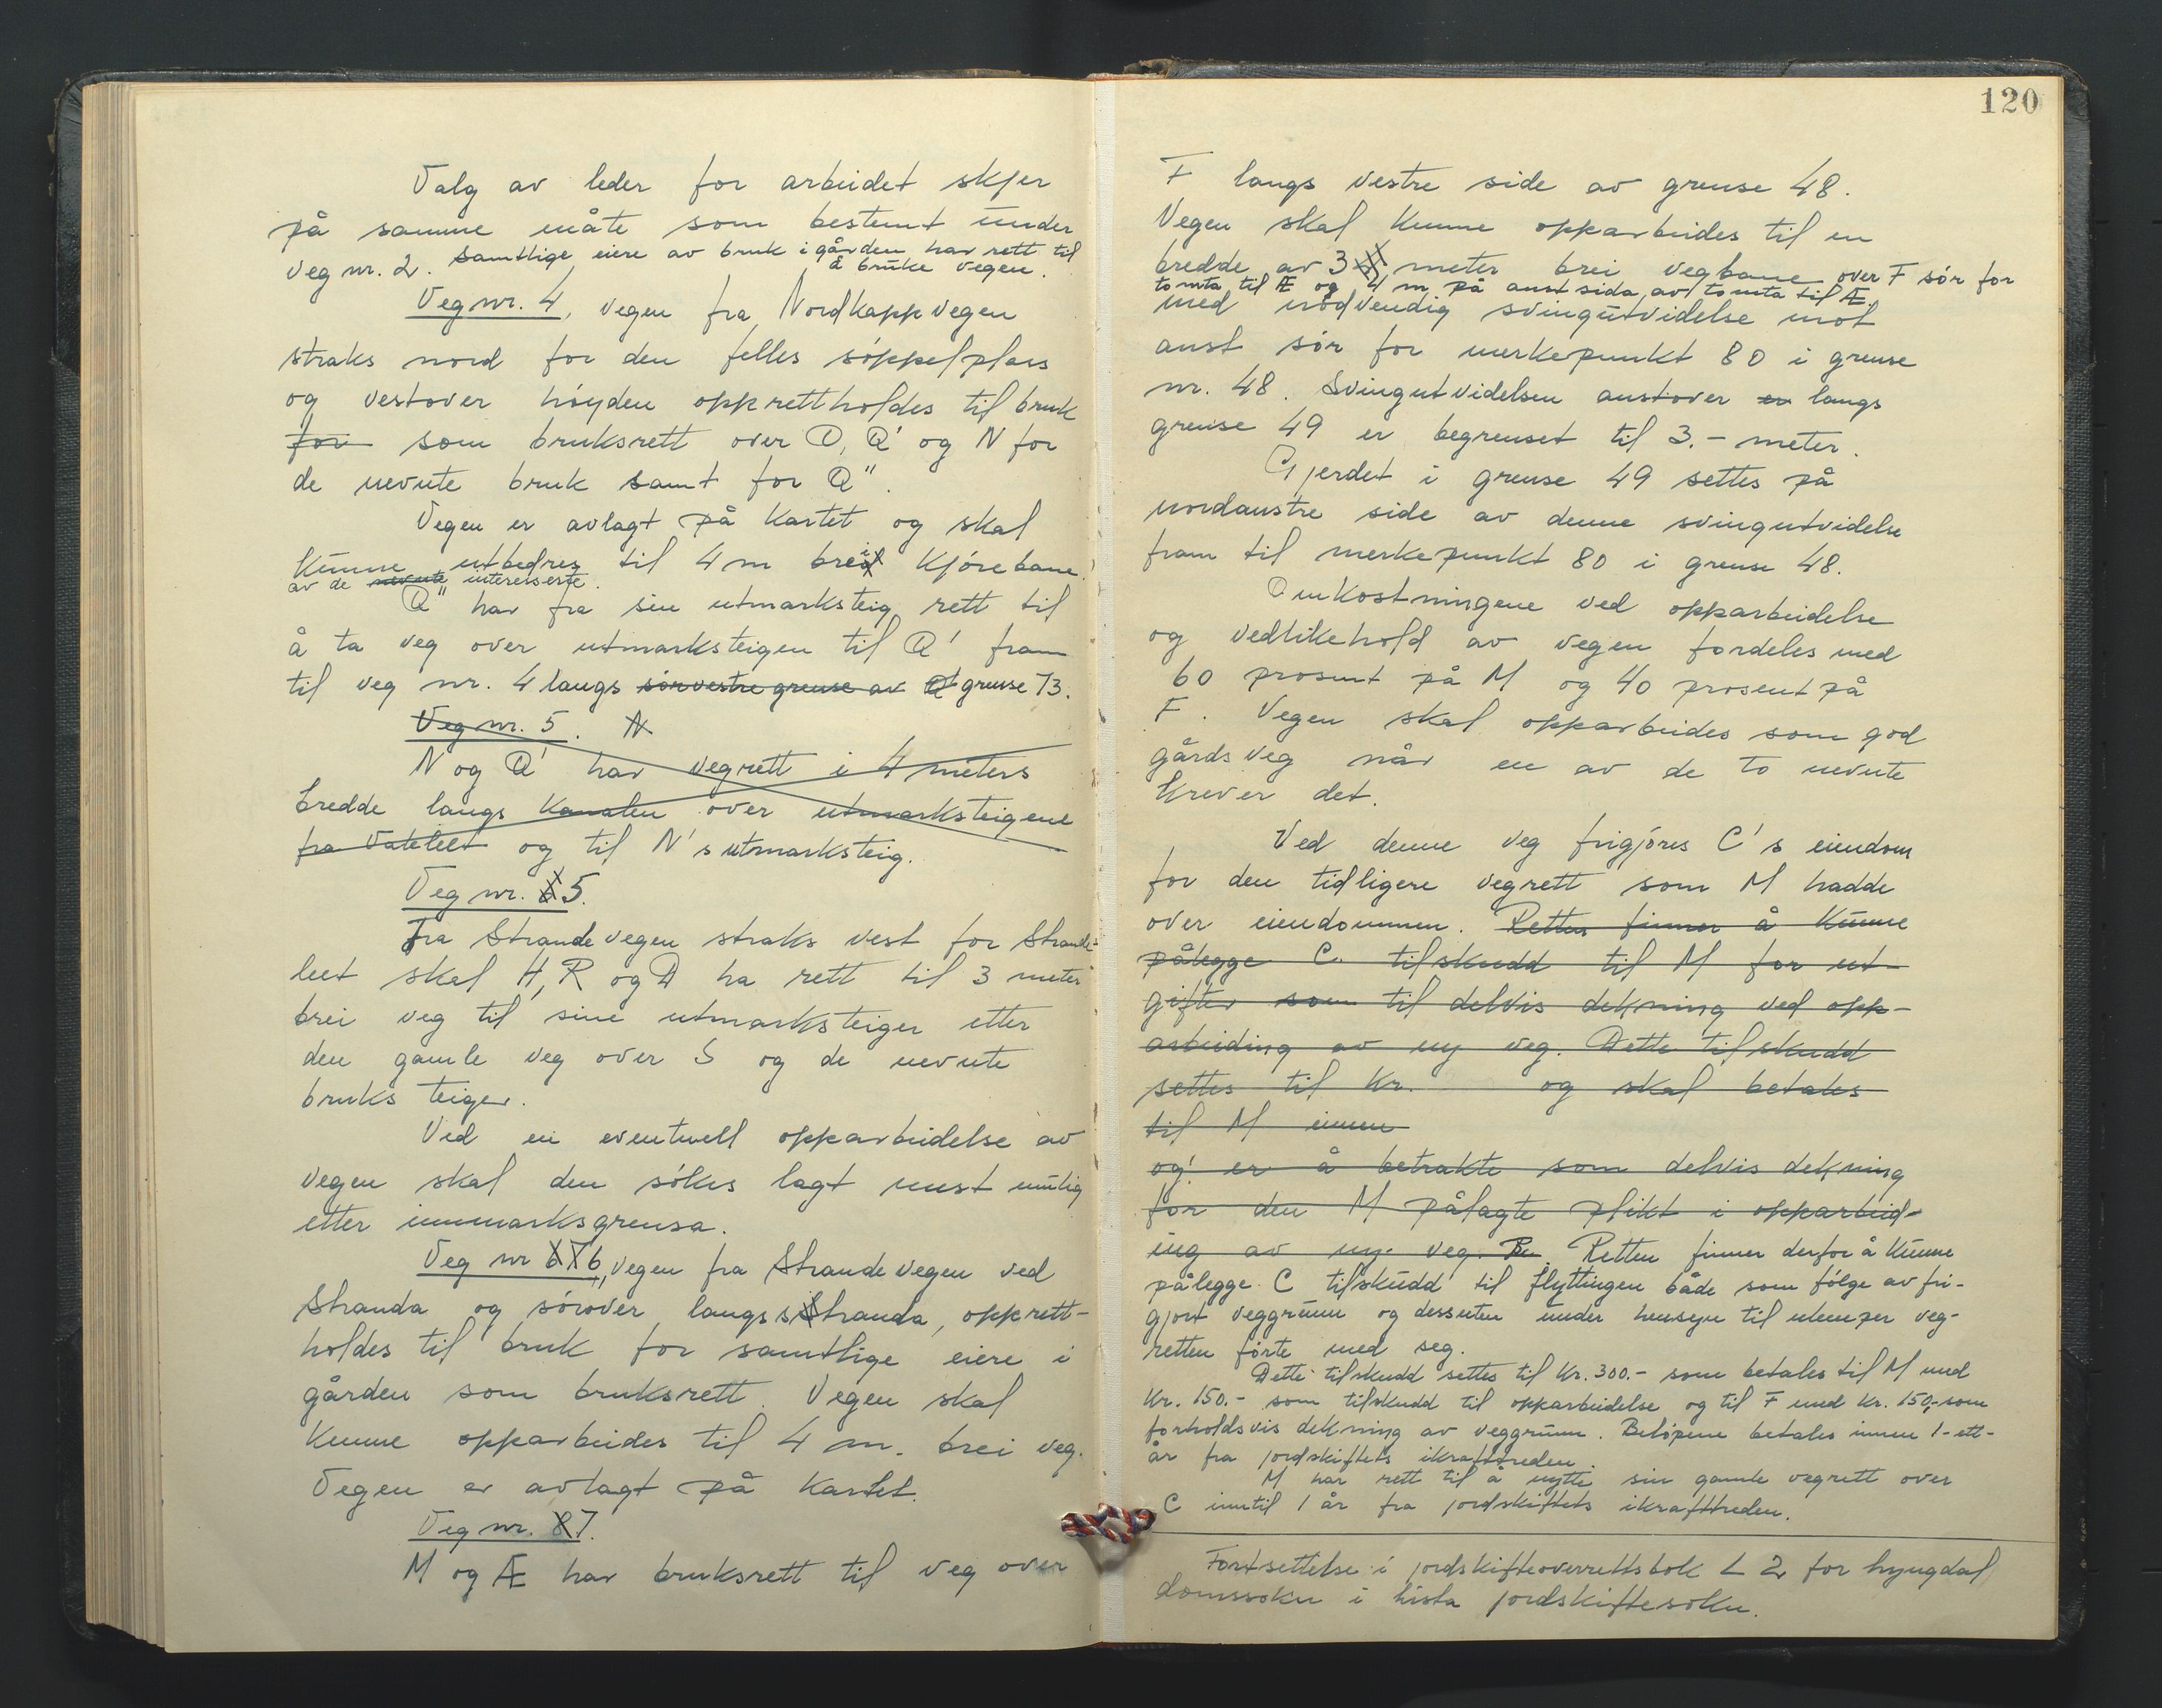 Valg av leder for arbeidet skjer
på samme måte som bestemt under
veg nr. 2. Samtlige eiere av bruk i gården har rett til
å bruke vegen.
Veg nr. 4, vegen fra Nordkappvegen
straks nord for den felles söppelplass
og vestover höyden opprettholdes til bruk
for som bruksrett over O, Q' og N for
de nevnte bruk samt for Q".
Vegen er avlagt på kartet og skal
kunne utbedres til 4 m brei kjörebane
av de nevnte interesserte.
Q" har fra sin utmarksteig rett til
å ta veg over utmarksteigen til Q' fram
til veg nr. 4 langs sörvestre grense av Q' grense 73.
Veg nr. 5. N
N og Q' har vegrett i 4 meters
bredde langs kanalen over utmarksteigene
fra og til N's utmarksteig.
Veg nr. 6 5.
Fra Strandevegen straks vest for Strande-
leet skal H, R og D ha rett til 3 meter
brei veg til sine utmarksteiger etter
den gamle veg over S og de nevnte
bruks teiger.
Ved en eventuell opparbeidelse av
vegen skal den sökes lagt mest mulig
etter innmarksgrensa.
Veg nr 6 7 6, vegen fra Strandevegen ved
Stranda og sörover langs Stranda, opprett-
holdes til bruk for samtlige eiere i
gården som bruksrett. Vegen skal
kunne opparbeides til 4 m. brei veg.
Vegen er avlagt på kartet.
Veg nr. 8 7.
M og Æ har bruksrett til veg over
120
F langs vestre side av grense 48.
Vegen skal kunne opparbeides til en
bredde av 3 4 meter brei vegbane over F sör for
tomta til Æ og 4 m på aust sida av tomta til Æ.
med nödvendig svingutvidelse mot
aust sör for merkepunkt 80 i grense
nr. 48. Svingutvidelsen austover er langs
grense 49 er begrenset til 3.- meter.
Gjerdet i grense 49 settes på
nordaustre side av denne svingutvidelse
fram til merkepunkt 80 i grense 48.
Omkostningene ved opparbeidelse
og vedlikehold av vegen fordeles med
60 prosent på M og 40 prosent på
F. Vegen skal opparbeides som god
gårdsveg når en av de to nevnte
krever det.
Ved denne veg frigjöres C's eiendom
for den tidligere vegrett som M hadde
over eiendommen. Retten finner å kunne
pålegge C. tilskudd til M for ut-
gifter som til delvis dekning ved opp-
arbeiding av ny veg. Dette tilskudd
settes til kr. og skal betales
til M innen
og er å betrakte som delvis dekning
for den M pålagte plikt i opparbeid-
ing av ny veg. Re. Retten finner derfor å kunne
pålegge C tilskudd til flyttingen både som fölge av fri-
gjort veggrunn og dessuten under hensyn til ulemper veg-
retten förte med seg.
Dette tilskudd settes til kr. 300.- som betales til M med
kr. 150.- som tilskudd til opparbeidelse og til F med kr. 150,- som
forholdsvis dekning av veggrunn. Belöpene betales innen 1-ett-
år fra jordskiftets ikrafttreden.
M har rett til å nytte sin gamle vegrett over
C inntil 1 år fra jordskiftets ikrafttreden.
Fortsettelse i jordskifteoverrettsbok L 2 for Lyngdal
domssokn i Lista jordskiftesokn.